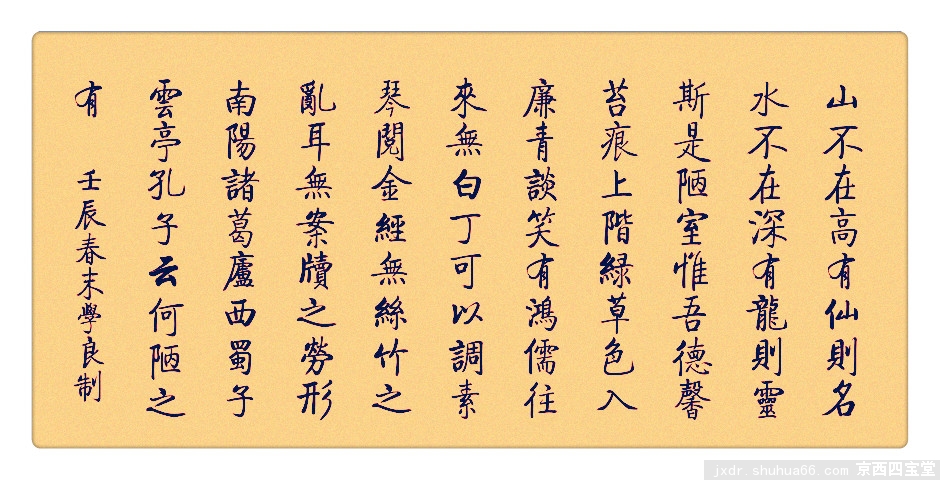 山不在高有仙則名
水不在深有龍則靈
斯是陋室惟吾德馨
苔痕上階緑草色入
廉青談笑有鴻儒往
來無白丁可以調素
琴閱金經無絲竹之
亂耳無案牘之勞形
南陽諸葛廬西蜀子
雲亭孔子云何陋之
有
壬辰春末學良制
jxdr.shuhua66.com 京西四宝堂